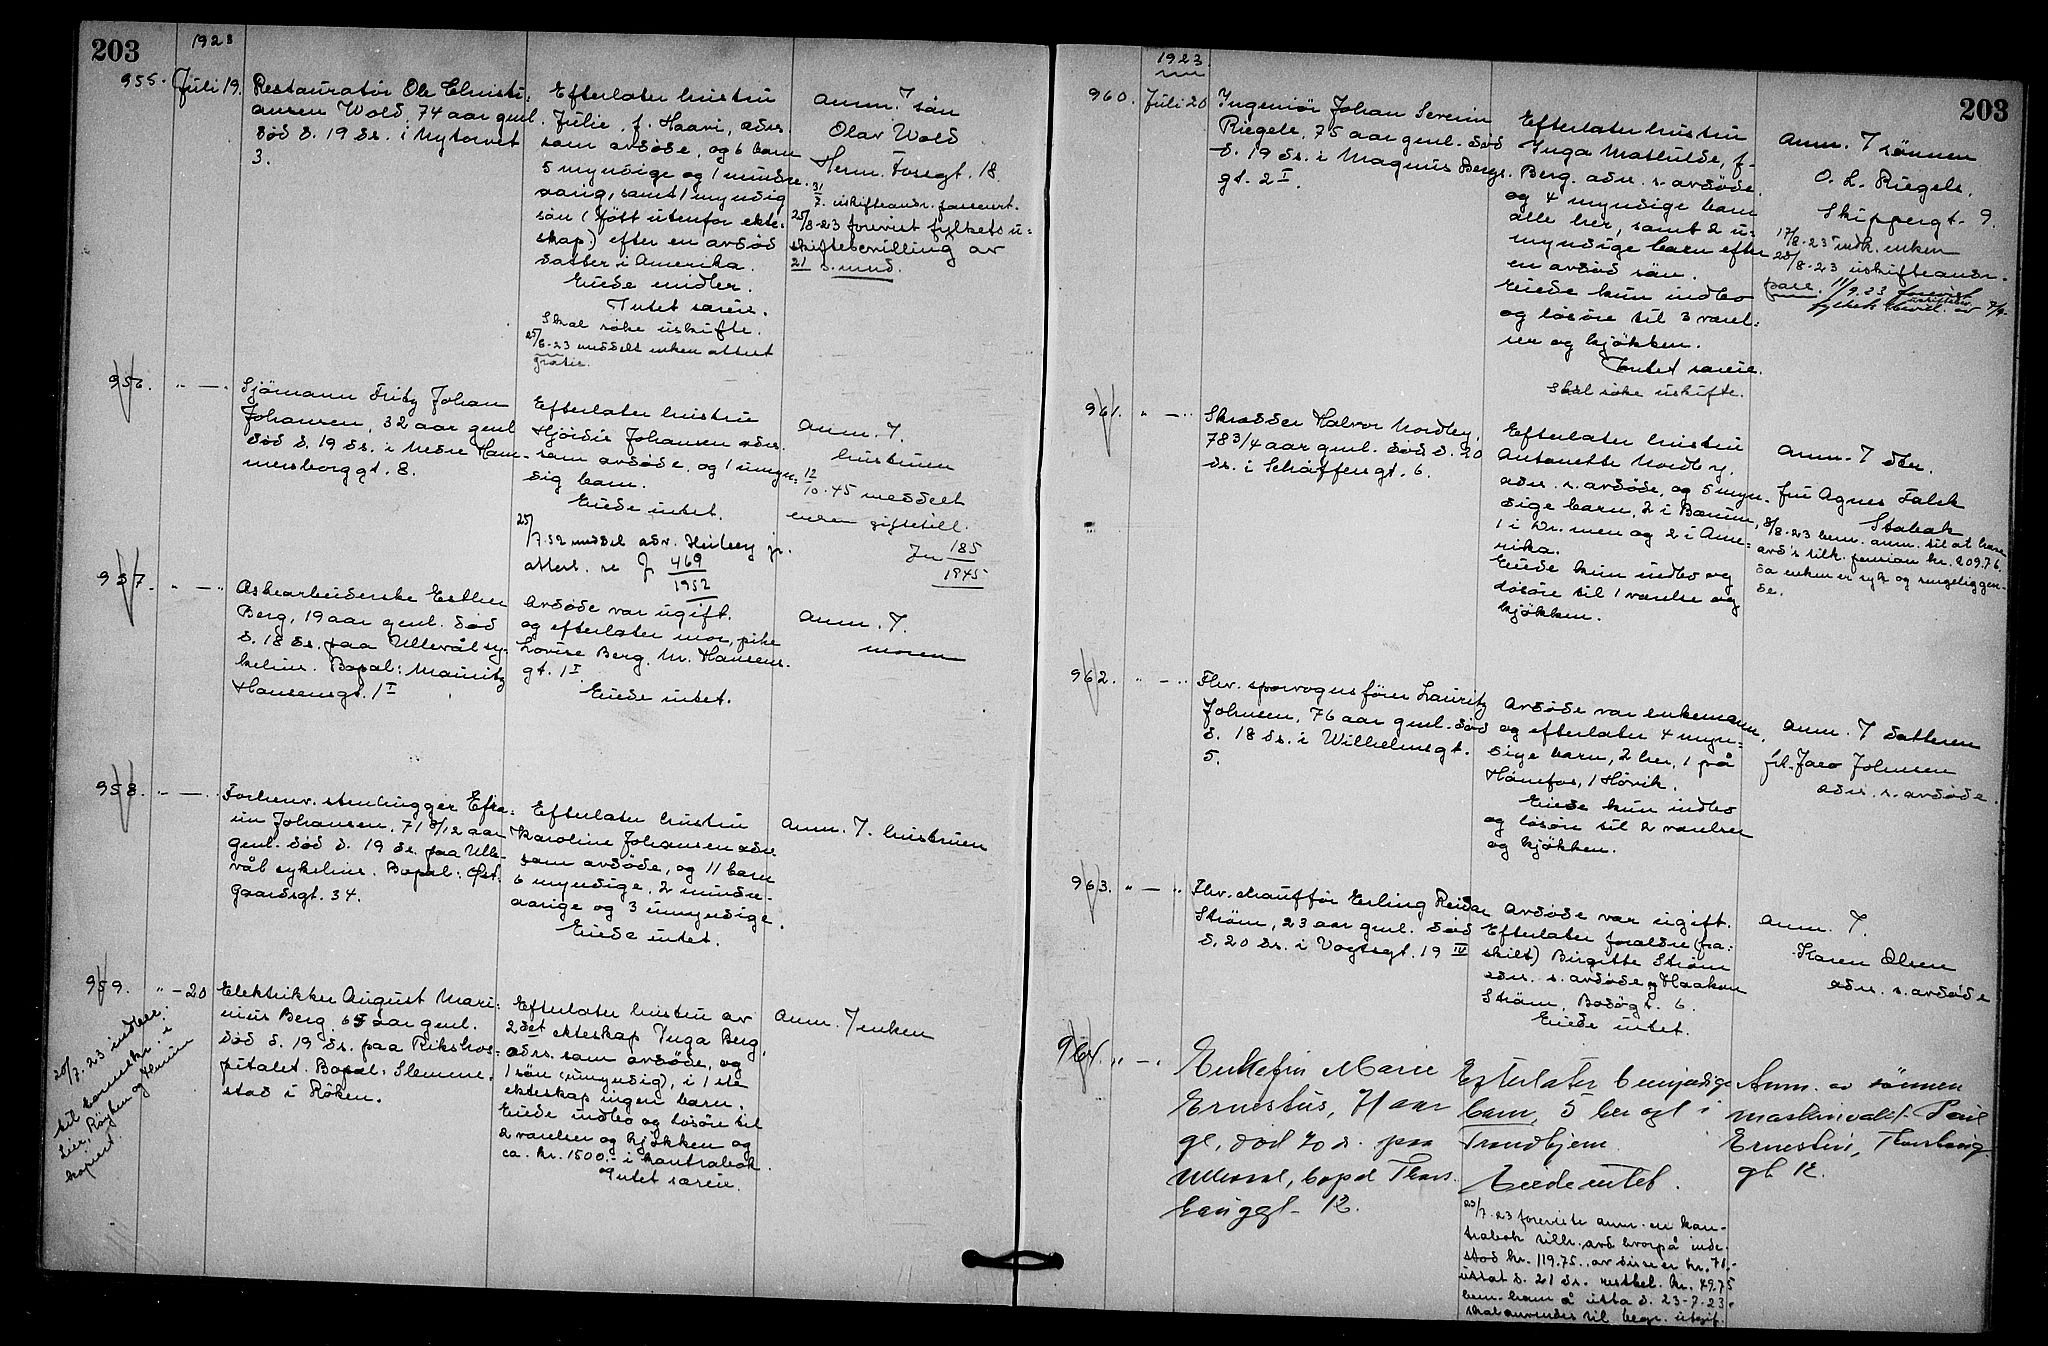 203
1923
955. Juli 19.
Restauratör Ole Christi-
ansen Wold, 74 aar gml.
död d. 19 ds. i Nytorvet
3.
Efterlater hustru
Julie, f. Haavi, adr.
som avdöde, og 6 barn
5 myndige og 1 mindre-
aarig, samt 1 myndig
sön (födt utenfor ekte-
skap) efter en avdöd
datter i Amerika.
Eiede midler.
Intet særeie.
Skal söke uskifte.
25/8-23 meddelt enken attest
gratis.
Anm. 7 sön
Olav Wold
Herm. Fossgt. 18.
31/7. uskifteandr.
25/8-23 forevist fylkets u-
skiftebevilling av
21 d. mnd.
956. " — "
Sjömann Fritz Johan
Johansen, 32 aar gml
död d. 19 ds. i Nedre Ham-
mersborggt. 8.
Efterlater hustru
Hjördis Johansen adr.
som avdöde, og 1 umyn-
dig barn.
Eiede intet.
25/7.52 meddel adv. Heiberg jr.
attest. re J 469
1952
Anm. 7.
hustruen
12/10.45 meddelt
enken giftetill.
Jn 185
1945
957. " — "
Askearbeiderske Esther
Berg, 19 aar gml. död
d. 18 ds. paa Ullevål sy-
kehus. Bopæl: Mauritz
Hansensgt. 1 I
Avdöde var ugift.
og efterlater mor, pike
Lovise Berg, M. Hansens-
gt. 1 I
Eiede intet.
Anm. 7.
moren
958. " — "
Forhenv. stenhugger Efra-
im Johansen, 71 8/12 aar
gml. död d. 19 ds. paa Ulle-
vål sykehus. Bopæl: Öst-
gaardsgt. 34.
Efterlater hustru
Karoline Johansen adr.
som avdöde, og 11 barn
6 myndige, 2 mindre-
aarige og 3 umyndige.
Eiede intet.
Anm. 7. hustruen
959. " — 20
25/7.23 indber.
til sorenskr. i
Lier, Röyken og Hurum
kopiert.
Elektrikker August Mari-
nius Berg, 65 aar gml.
död d. 19 ds. paa Rikshos-
pitalet. Bopæl: Slemme-
stad i Röken.
Efterlater hustru av
2det ekteskap Inga Berg,
adrs. som avdöde, og
1 sön (umyndig), i 1ste
ekteskap ingen barn.
Eiede indbo og lösöre til
2 værelser og kjökken og
ca. kr. 1500.- i kontrabok.
Intet særeie.
Anm. 7 enken
203
1923
960. Juli 20
Ingeniör Johan Severin
Riegels, 75 aar gml. död
d. 19 ds. i Magnus Bergs-
gt. 2 I.
Efterlater hustru
Inga Mathilde, f.
Berg. adr. s. avdöde.
og 4 myndige barn
alle her, samt 2 u-
myndige barn efter
en avdöd sön.
Eiede kun indbo
og lösöre til 3 værel-
ser og kjökken.
Intet særeie.
Skal söke uskifte.
Anm. 7 sönnen
O. L. Riegels,
Skippergt. 9.
17/8-23 indk. enken
25/8-23 uskifteandr.
11/9.23 forevist
961. " — "
Skrædder Halvor Nordby,
78 3/4 aar gml. död d. 20
ds. i Schaffersgt. 6.
Efterlater hustru
Antonette Nordby,
adr. s. avdöde, og 5 myn-
dige barn, 2 i Bærum,
1 i Dr.men og 2 i Ame-
rika.
Eiede kun indbo og
lösöre til 1 værelse og
kjökken.
Anm. 7 dtr.
fru Agnes Falck
Stabæk
8/8-23 bem. anm. til at hæve
avd's tilk. pension kr. 209.76.
da enken er syk og sengeliggen-
de.
962. " — "
Fhv. sporvognsförer Lauritz
Johnsen, 76 aar gml. död
d. 18 ds. i Wilhelmsgt.
5.
Avdöde var enkemann,
og efterlater 4 myn-
dige barn, 2 her, 1 på
Hönefos, 1 Hövik.
Eiede kun indbo
og lösöre til 2 værelser
og kjökken.
Anm. 7 datteren
Johnsen
adr. s. avdöde.
963. " — "
Fhv. chaufför Erling Reidar
Ström, 23 aar gml. död
d. 20 ds. i Vogtsgt. 19 IV
Avdöde var ugift.
Efterlater forældre (fra-
skilt) Birgitte Ström
adr. s. avdöde og Haakon
Ström, Bodögt. 6.
Eiede intet.
Anm. 7.
Karen Olsen
adr. s. avdöde
964. " — "
Enkefru Marie
Ernestus, 71 aar
gl, död 20 d. paa
Ullevaal, bopæl Thors-
henggt. 12.
Efterlater 6 myndige
barn, 5 her og 1 i
Trondhjem.
Eiede intet.
23/7.23 foreviste anm. en kon-
trabok tilh. avd hvorpå inde-
stod kr. 119.75. av disse er kr. 70,-
uttat d. 21 ds. restbel. kr. 49.75
bem. ham å utta d. 23-7-23.
skal anvendes til begr. utgif.
Anm. av sönnen
Ernestus,
gt 12.